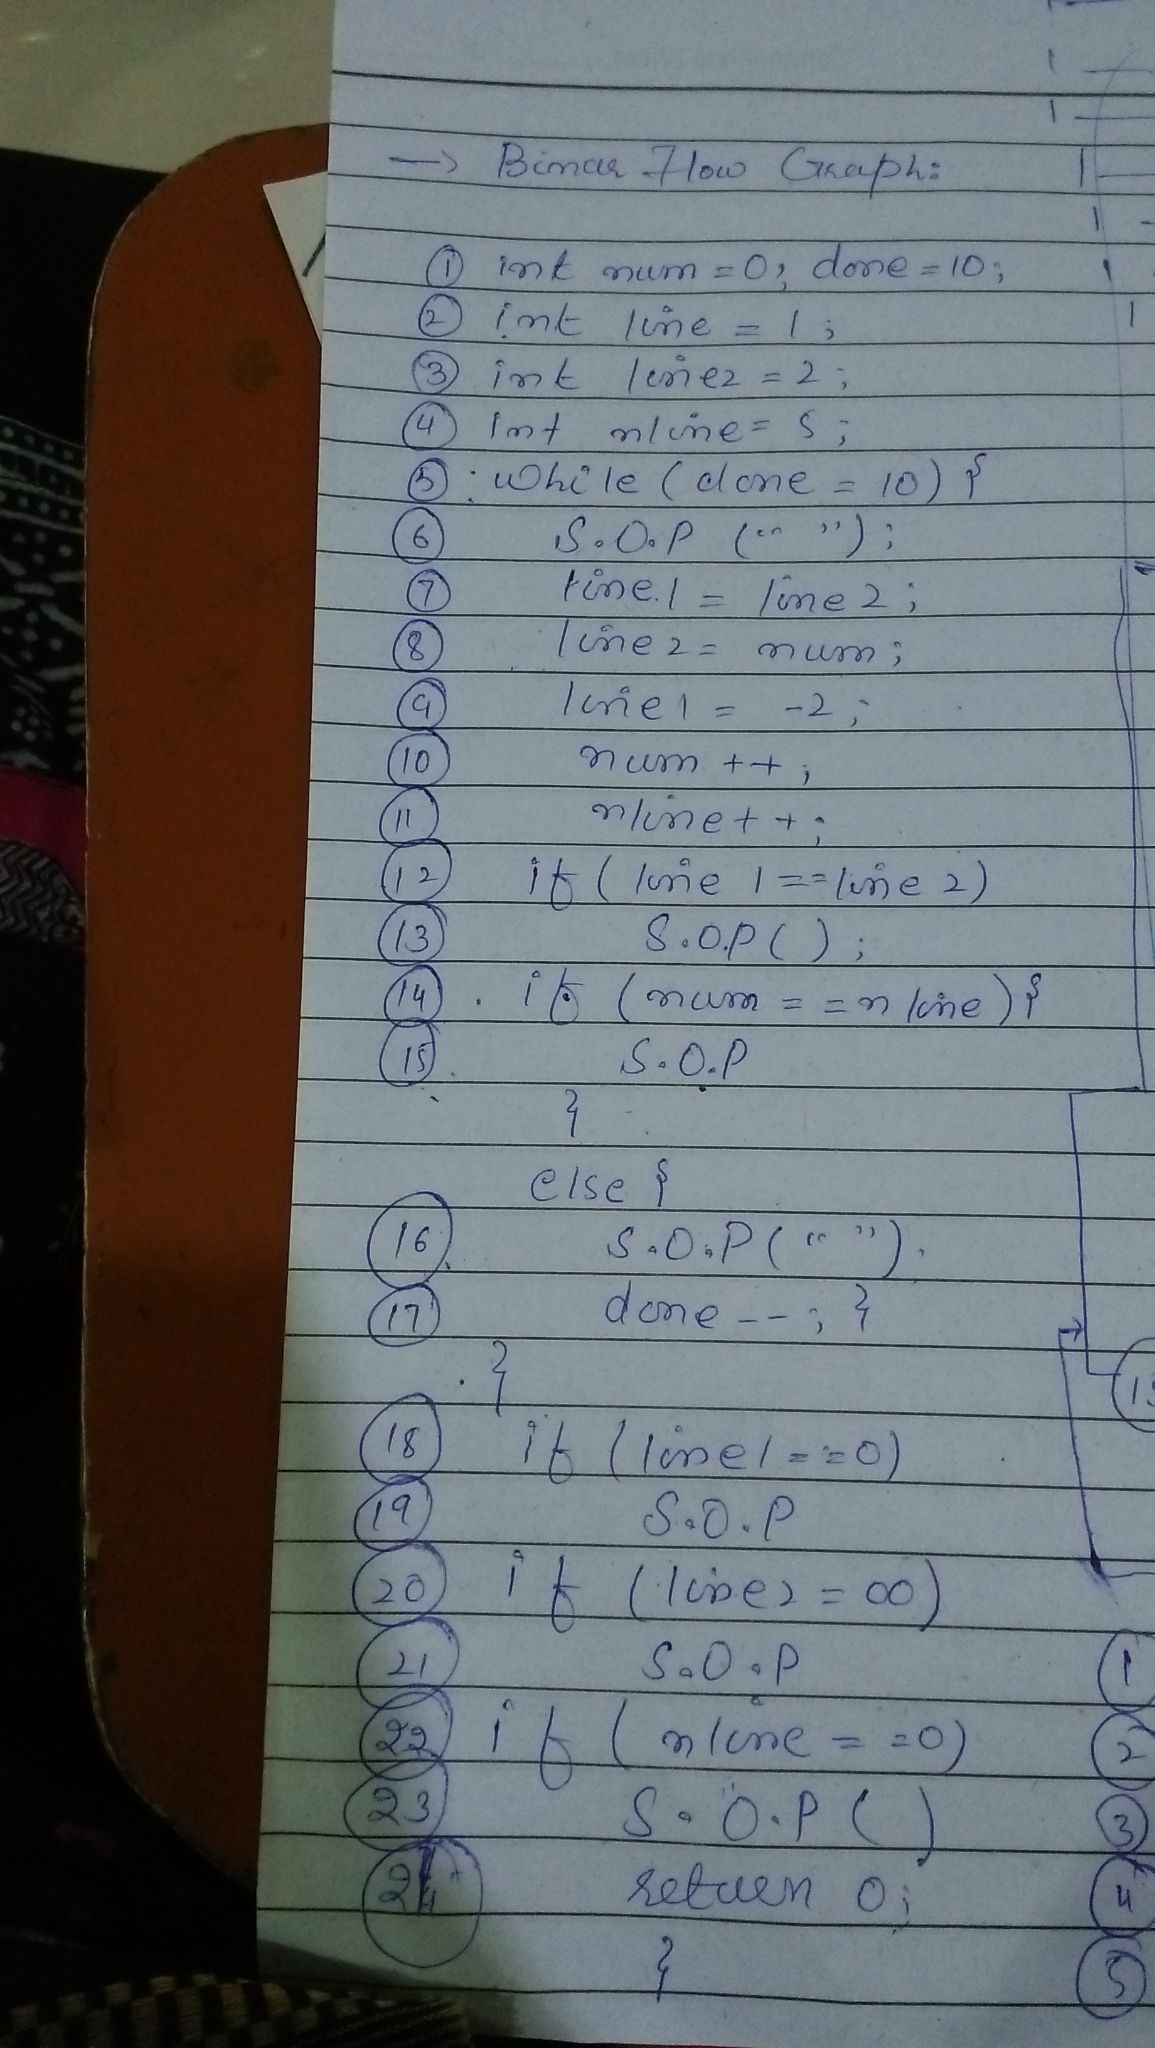 → Binar Flow Graph:
① int num = 0; done = 10;
② int line = 1;
③ int line2 = 2;
④ int nline = 5;
⑤ while (done = 10) {
⑥ S.O.P (" ");
⑦ line1 = line 2;
⑧ line 2 = num;
⑨ line 1 = -2;
⑩ num ++;
⑪ nline++;
⑫ if (line 1 == line 2)
⑬ S.O.P ( );
⑭ if (num == nline) {
⑮ S.O.P
}
else {
⑯ S.O.P (" ").
⑰ done --; }
}
⑱ if (line1 == 0)
⑲ S.O.P
⑳ if (line2 = 00)
㉑ S.O.P
㉒ if (nline == 0)
㉓ S.O.P ( )
㉔ return 0;
}
①
②
③
④
⑤